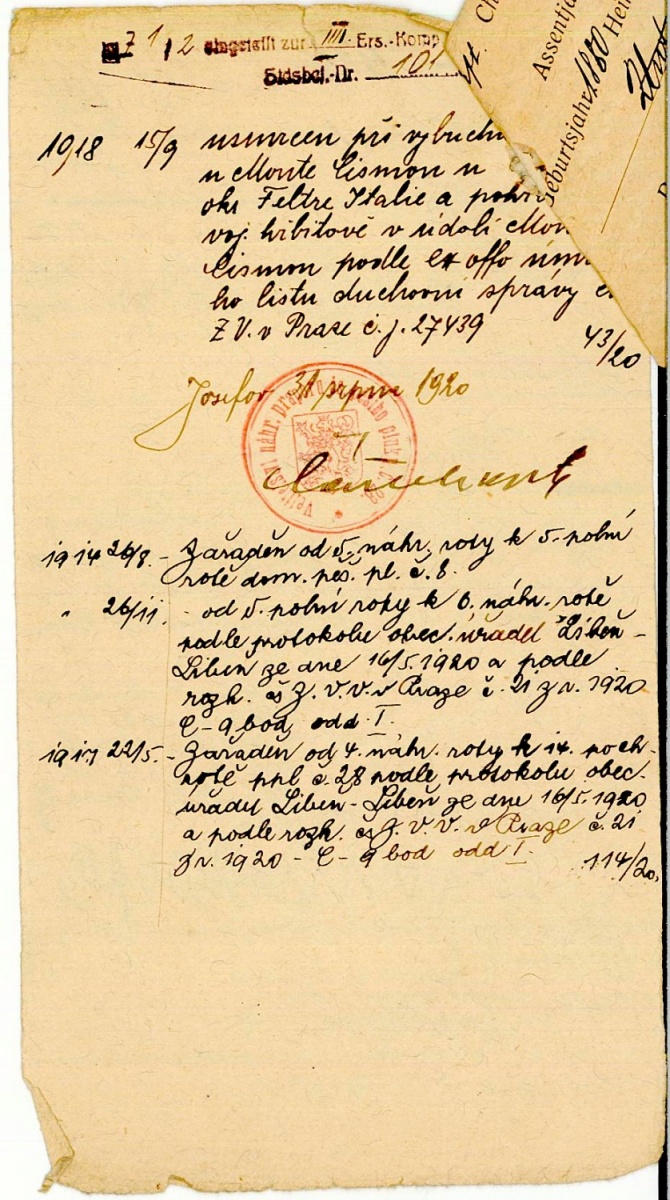 7 1/2 eingstellt zur III. Ers.-Komp
Stdsbef.-Nr. 101
Assentja
Geburtsjahr 1880
1918 15/9 usmrcen při výbuchu
u Monte Cismon u
okr Feltre Italie a pohř
voj. hřbitově v údolí Mon
Cismon podle ex offo úmr
ho listu duchovní správy
Z V. v Praze č. j. 27439
43/20
Josefov 31 srpna 1920
1914 26/8. - Zařaděn od 5. náhr. roty k 5. polní
rotě dom. pěš. pl. č. 8.
" 26/11. - od 5. polní roty k 6. náhr. rotě
podle protokolu obec. úřadu Libeň-
Libeň ze dne 16/5. 1920 a podle
rozh. čs Z. V. V. v Praze č. 21 z r. 1920
C - 9 bod odd I.
1917 22/5. - Zařaděn od 4. náhr. roty k 14. poch-
rotě ppl č. 28 podle protokolu obec.
úřadu Libeň - Libeň ze dne 16/5. 1920
a podle rozh. čs Z. V. V. v Praze č. 21
z r. 1920 - C - 9 bod odd I.
114/20.